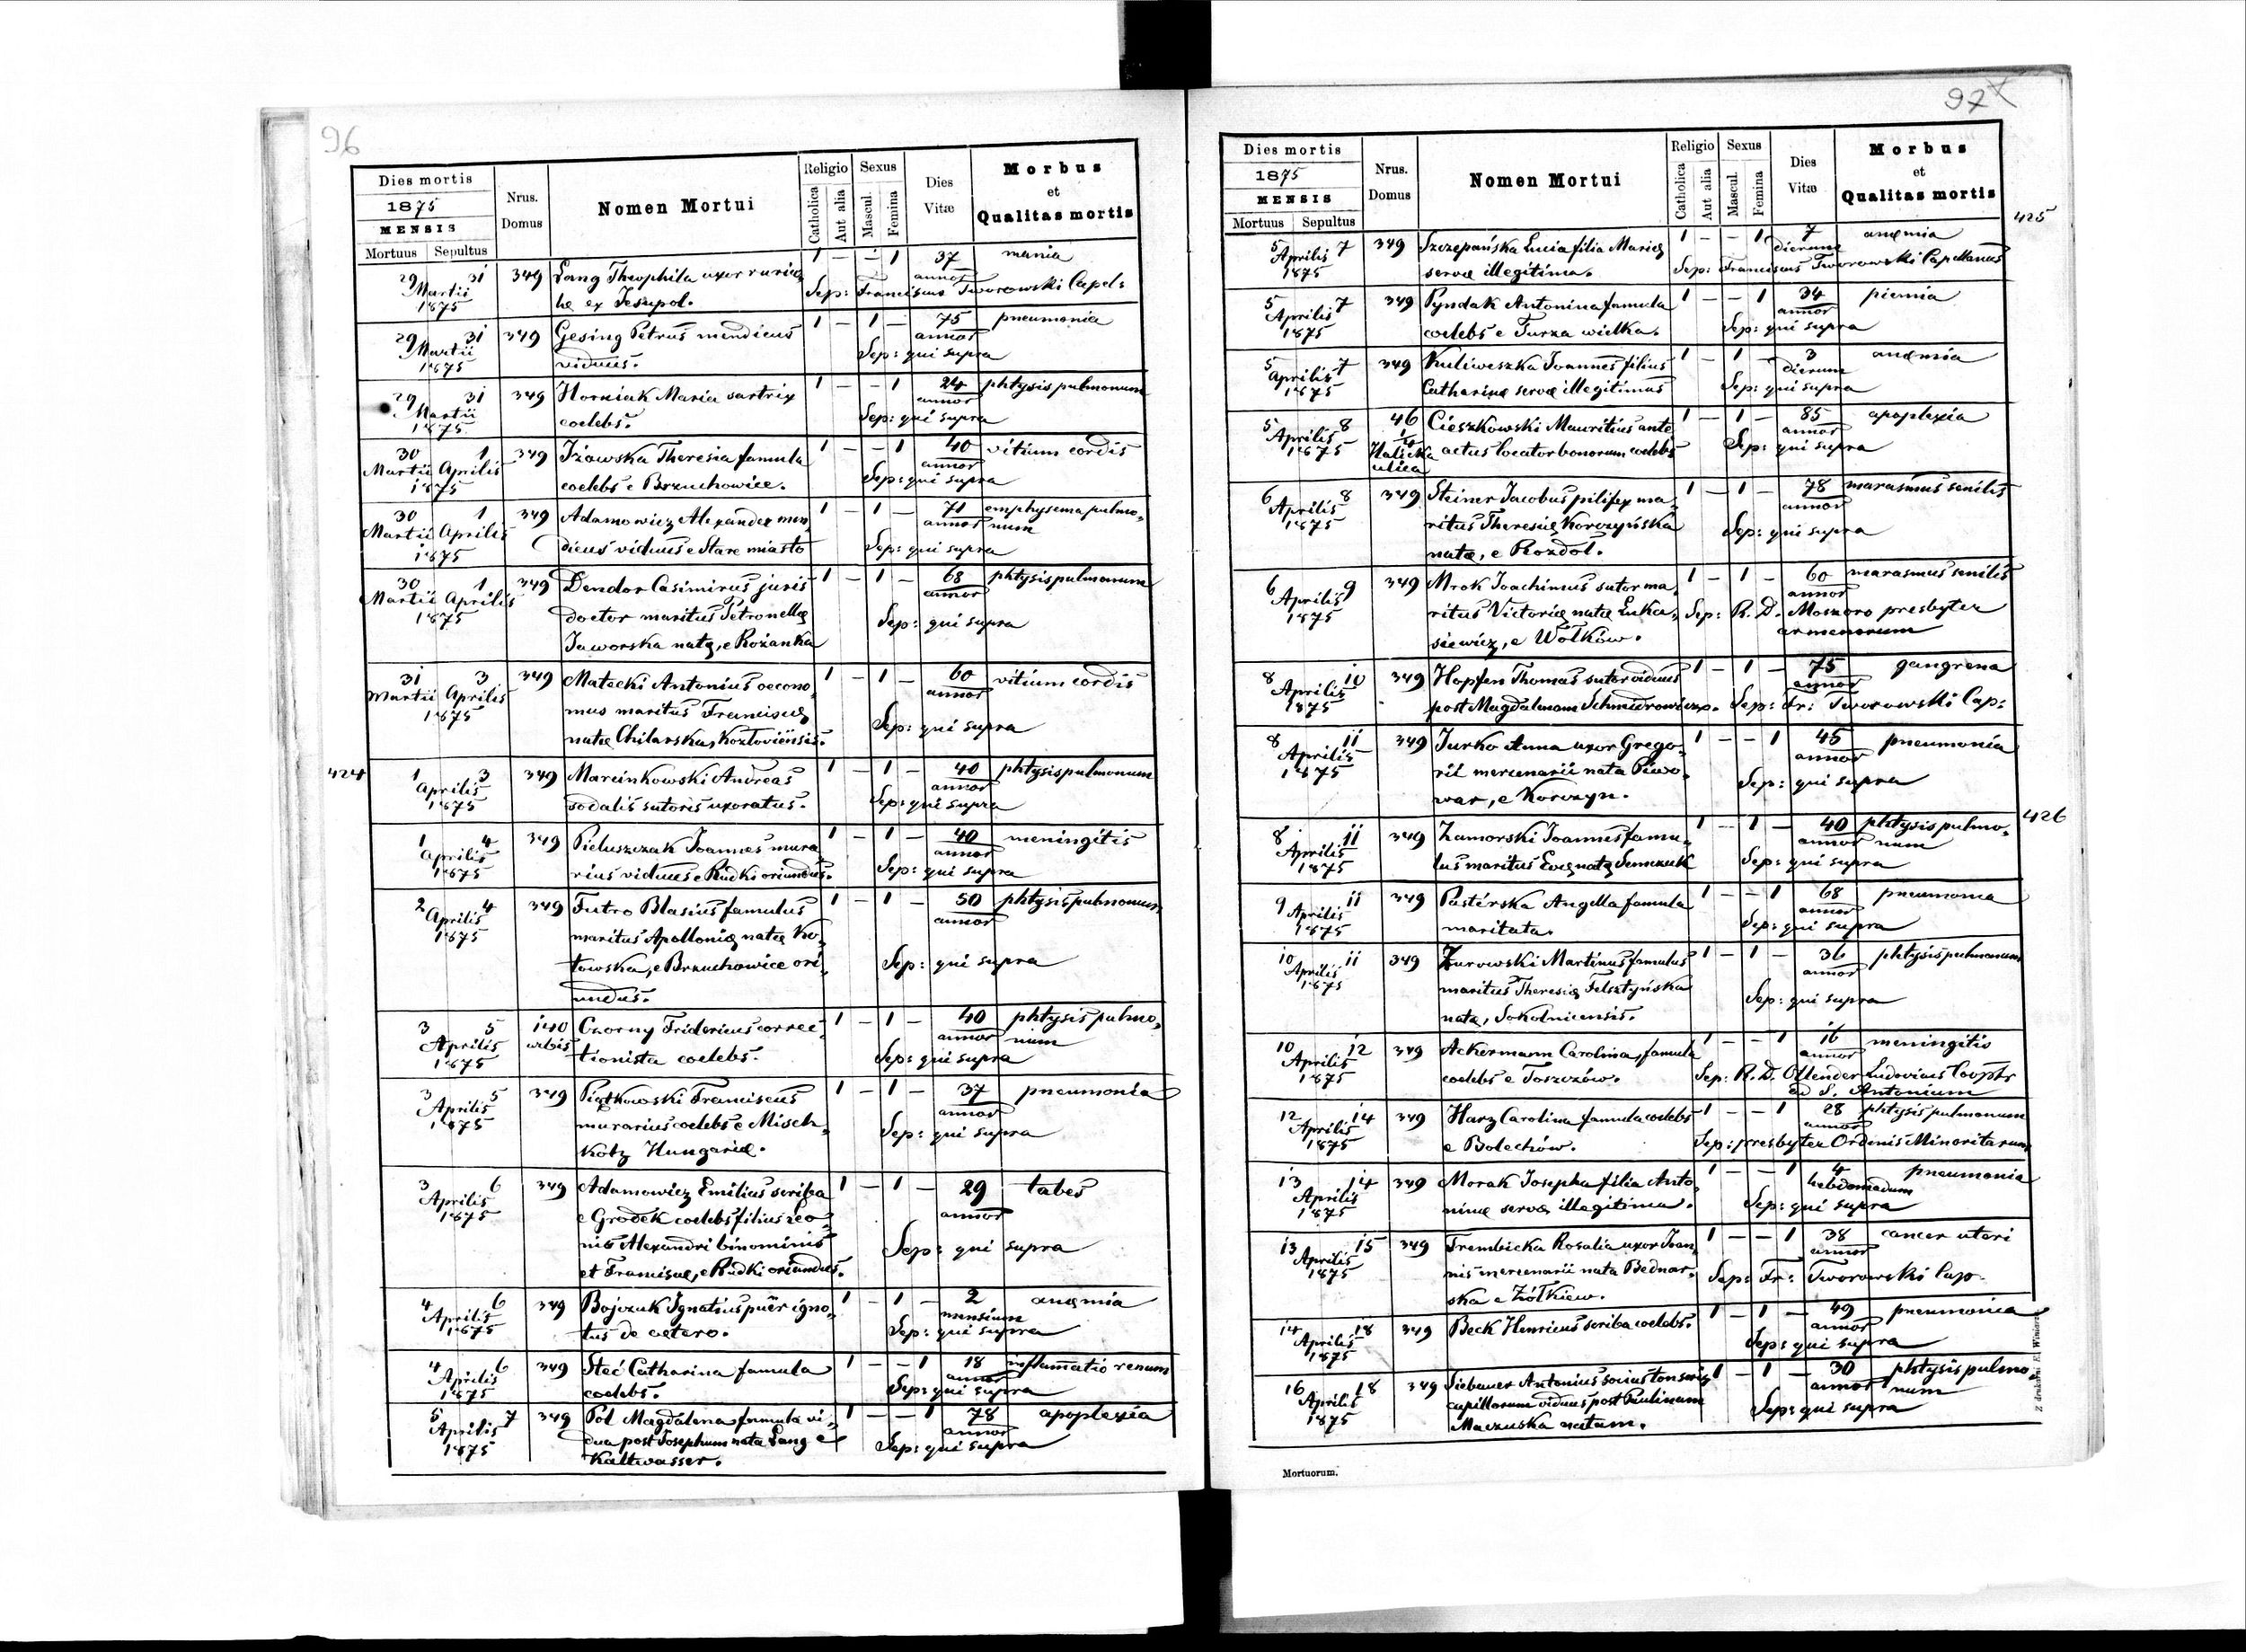 96
Dies mortis
1875
MENSIS
Mortuus Sepultus
Nrus.
Domus
Nomen Mortui
Religio
Catholica
Aut alia
Sexus
Mascul.
Femina
Dies
Vitæ
Morbus
et
Qualitas mortis
29 31 349 Lang Theophila uxor 1 – – 1 37 mania
Martii annor
1875 ex Jesupol. Sep: Franciscus Tworowski Capel:
29 31 349 Gesing Petrus mendicus 1 – 1 – 75 pneumonia
Martii annor
1875 viduus. Sep: qui supra
29 31 349 Horniak Maria sartrix 1 – – 1 24 phtysis pulmonum
Martii annor
1875 coelebs. Sep: qui supra
30 1 349 Iżowska Theresia famula 1 – – 1 40 vitium cordis
Martii Aprilis annor
1875 coelebs e Brzuchowice. Sep: qui supra
30 1 349 Adamowicz Alexander men- 1 – 1 – 71 emphysema pulmo-
Martii Aprilis annor num
1875 dicus viduus e Stare miasto Sep: qui supra
30 1 349 Dendor Casimirus juris 1 – 1 – 68 phtysis pulmonum
Martii Aprilis annor
1875 doctor maritus Petronellę Sep: qui supra
Jaworska natę, e Rożanka
31 3 349 Matecki Antonius oecono- 1 – 1 – 60 vitium cordis
Martii Aprilis annor
1875 mus maritus Franciscę Sep: qui supra
natæ Chilarska, Kozłoviensis.
424 1 3 349 Marcinkowski Andreas 1 – 1 – 40 phtysis pulmonum
Aprilis annor
1875 sodalis sutoris uxoratus. Sep: qui supra
1 4 349 Pieluszczak Joannes mura- 1 – 1 – 40 meningitis
Aprilis annor
1875 rius viduus e Rudki oriundus. Sep: qui supra
2 4 349 Futro Blasius famulus 1 – 1 – 50 phtysis pulmonum
Aprilis annor
1875 maritus Apollonię natę Ko-
towska, e Brzuchowice ori- Sep: qui supra
undus.
3 5 140 Czorny Fridericus correc- 1 – 1 – 40 phtysis pulmo-
Aprilis urbis annor num
1875 tionista coelebs. Sep: qui supra
3 5 349 Piątkowski Franciscus 1 – 1 – 37 pneumonia
Aprilis annor
1875 murarius coelebs e Misch- Sep: qui supra
kotz Hungariæ.
3 6 349 Adamowicz Emilius scriba 1 – 1 – 29 tabes
Aprilis annor
1875 e Grodek coelebs filius Leo-
nis Alexandri binominis Sep: qui supra
et Franciscæ, e Rudki oriundus.
4 6 349 Bojczuk Ignatius puer igno- 1 – 1 – 2 anęmia
Aprilis mensium
1875 tus de cetero. Sep: qui supra
4 6 349 Steć Catharina famula 1 – – 1 18 inflamatio renum
Aprilis annor
1875 coelebs. Sep: qui supra
5 7 349 Pol Magdalena famula vi- 1 – – 1 78 apoplexia
Aprilis annor
1875 dua post Josephum nata Lang e Sep: qui supra
Kaltwasser.
97
Dies mortis
1875
MENSIS
Mortuus Sepultus
Nrus.
Domus
Nomen Mortui
Religio
Catholica
Aut alia
Sexus
Mascul.
Femina
Dies
Vitæ
Morbus
et
Qualitas mortis
425
5 7 349 Szczepańska Lucia filia Marię 1 – – 1 7 anęmia
Aprilis dierum
1875 servæ illegitima. Sep: Franciscus Tworowski Capellanus
5 7 349 Pyndak Antonina famula 1 – – 1 34 piemia
Aprilis annor
1875 coelebs e Turza wielka. Sep: qui supra
5 7 349 Kuliweszka Joannes filius 1 – 1 – 3 anęmia
Aprilis dierum
1875 Catharinę servæ illegitimus Sep: qui supra
5 8 46 Cieszkowski Mauritius ante 1 – 1 – 85 apoplexia
Aprilis 1/4 annor
1875 Halicka actus locator bonorum coelebs Sep: qui supra
ulica
6 8 349 Steiner Jacobus pilifex ma- 1 – 1 – 78 marasmus senilis
Aprilis annor
1875 ritus Theresię Korczyńska Sep: qui supra
natæ, e Rozdoł.
6 9 349 Mrok Joachimus sutor ma- 1 – 1 – 60 marasmus senilis
Aprilis annor
1875 ritus Victorię natę Łuka- Sep: R. D. Moszoro presbyter
siewicz, e Wołków. armenorum
8 10 349 Hopfen Thomas sutor viduus 1 – 1 – 75 gangrena
Aprilis annor
1875 post Magdalenam Schmidrowicz. Sep: Fr: Tworowski Cap:
8 11 349 Jurko Anna uxor Grego- 1 – – 1 45 pneumonia
Aprilis annor
1875 rii mercenarii nata Piwo- Sep: qui supra
war, e Korczyn.
426
8 11 349 Zamorski Joannes famu- 1 – 1 – 40 phtysis pulmo-
Aprilis annor num
1875 lus maritus Evę natę Semczuk Sep: qui supra
9 11 349 Pasterska Angella famula 1 – – 1 68 pneumonia
Aprilis annor
1875 maritata. Sep: qui supra
10 11 349 Żurowski Martinus famulus 1 – 1 – 36 phtysis pulmonum
Aprilis annor
1875 maritus Theresię Felsztyńska Sep: qui supra
natę, Sokolnicensis.
10 12 349 Ackermann Carolina, famula 1 – – 1 16 meningitis
Aprilis annor
1875 coelebs e Toszczów. Sep: R. D. Ollender Ludovicus Cooptr
ad S. Antonium
12 14 349 Harz Carolina famula coelebs 1 – – 1 28 phtysis pulmonum
Aprilis annor
1875 e Bolechów. Sep: presbyter Ordinis Minoritarum
13 14 349 Morak Josepha filia Anto- 1 – – 1 4 pneumonia
Aprilis hebdomadum
1875 ninæ servę illegitima. Sep: qui supra
13 15 349 Trembicka Rosalia uxor Joan- 1 – – 1 38 cancer uteri
Aprilis annor
1875 nis mercenarii nata Bednar- Sep: Fr: Tworowski Cap.
ska e Żółkiew.
14 18 349 Beck Henricus scriba coelebs. 1 – 1 – 49 pneumonia
Aprilis annor
1875 Sep: qui supra
16 18 349 Siebauer Antonius socius tonsoris 1 – 1 – 30 phtysis pulmo-
Aprilis annor num
1875 capillorum viduus post Paulinam Sep: qui supra
Maczuska natam.
Mortuorum.
Z drukarni E. Winiarz